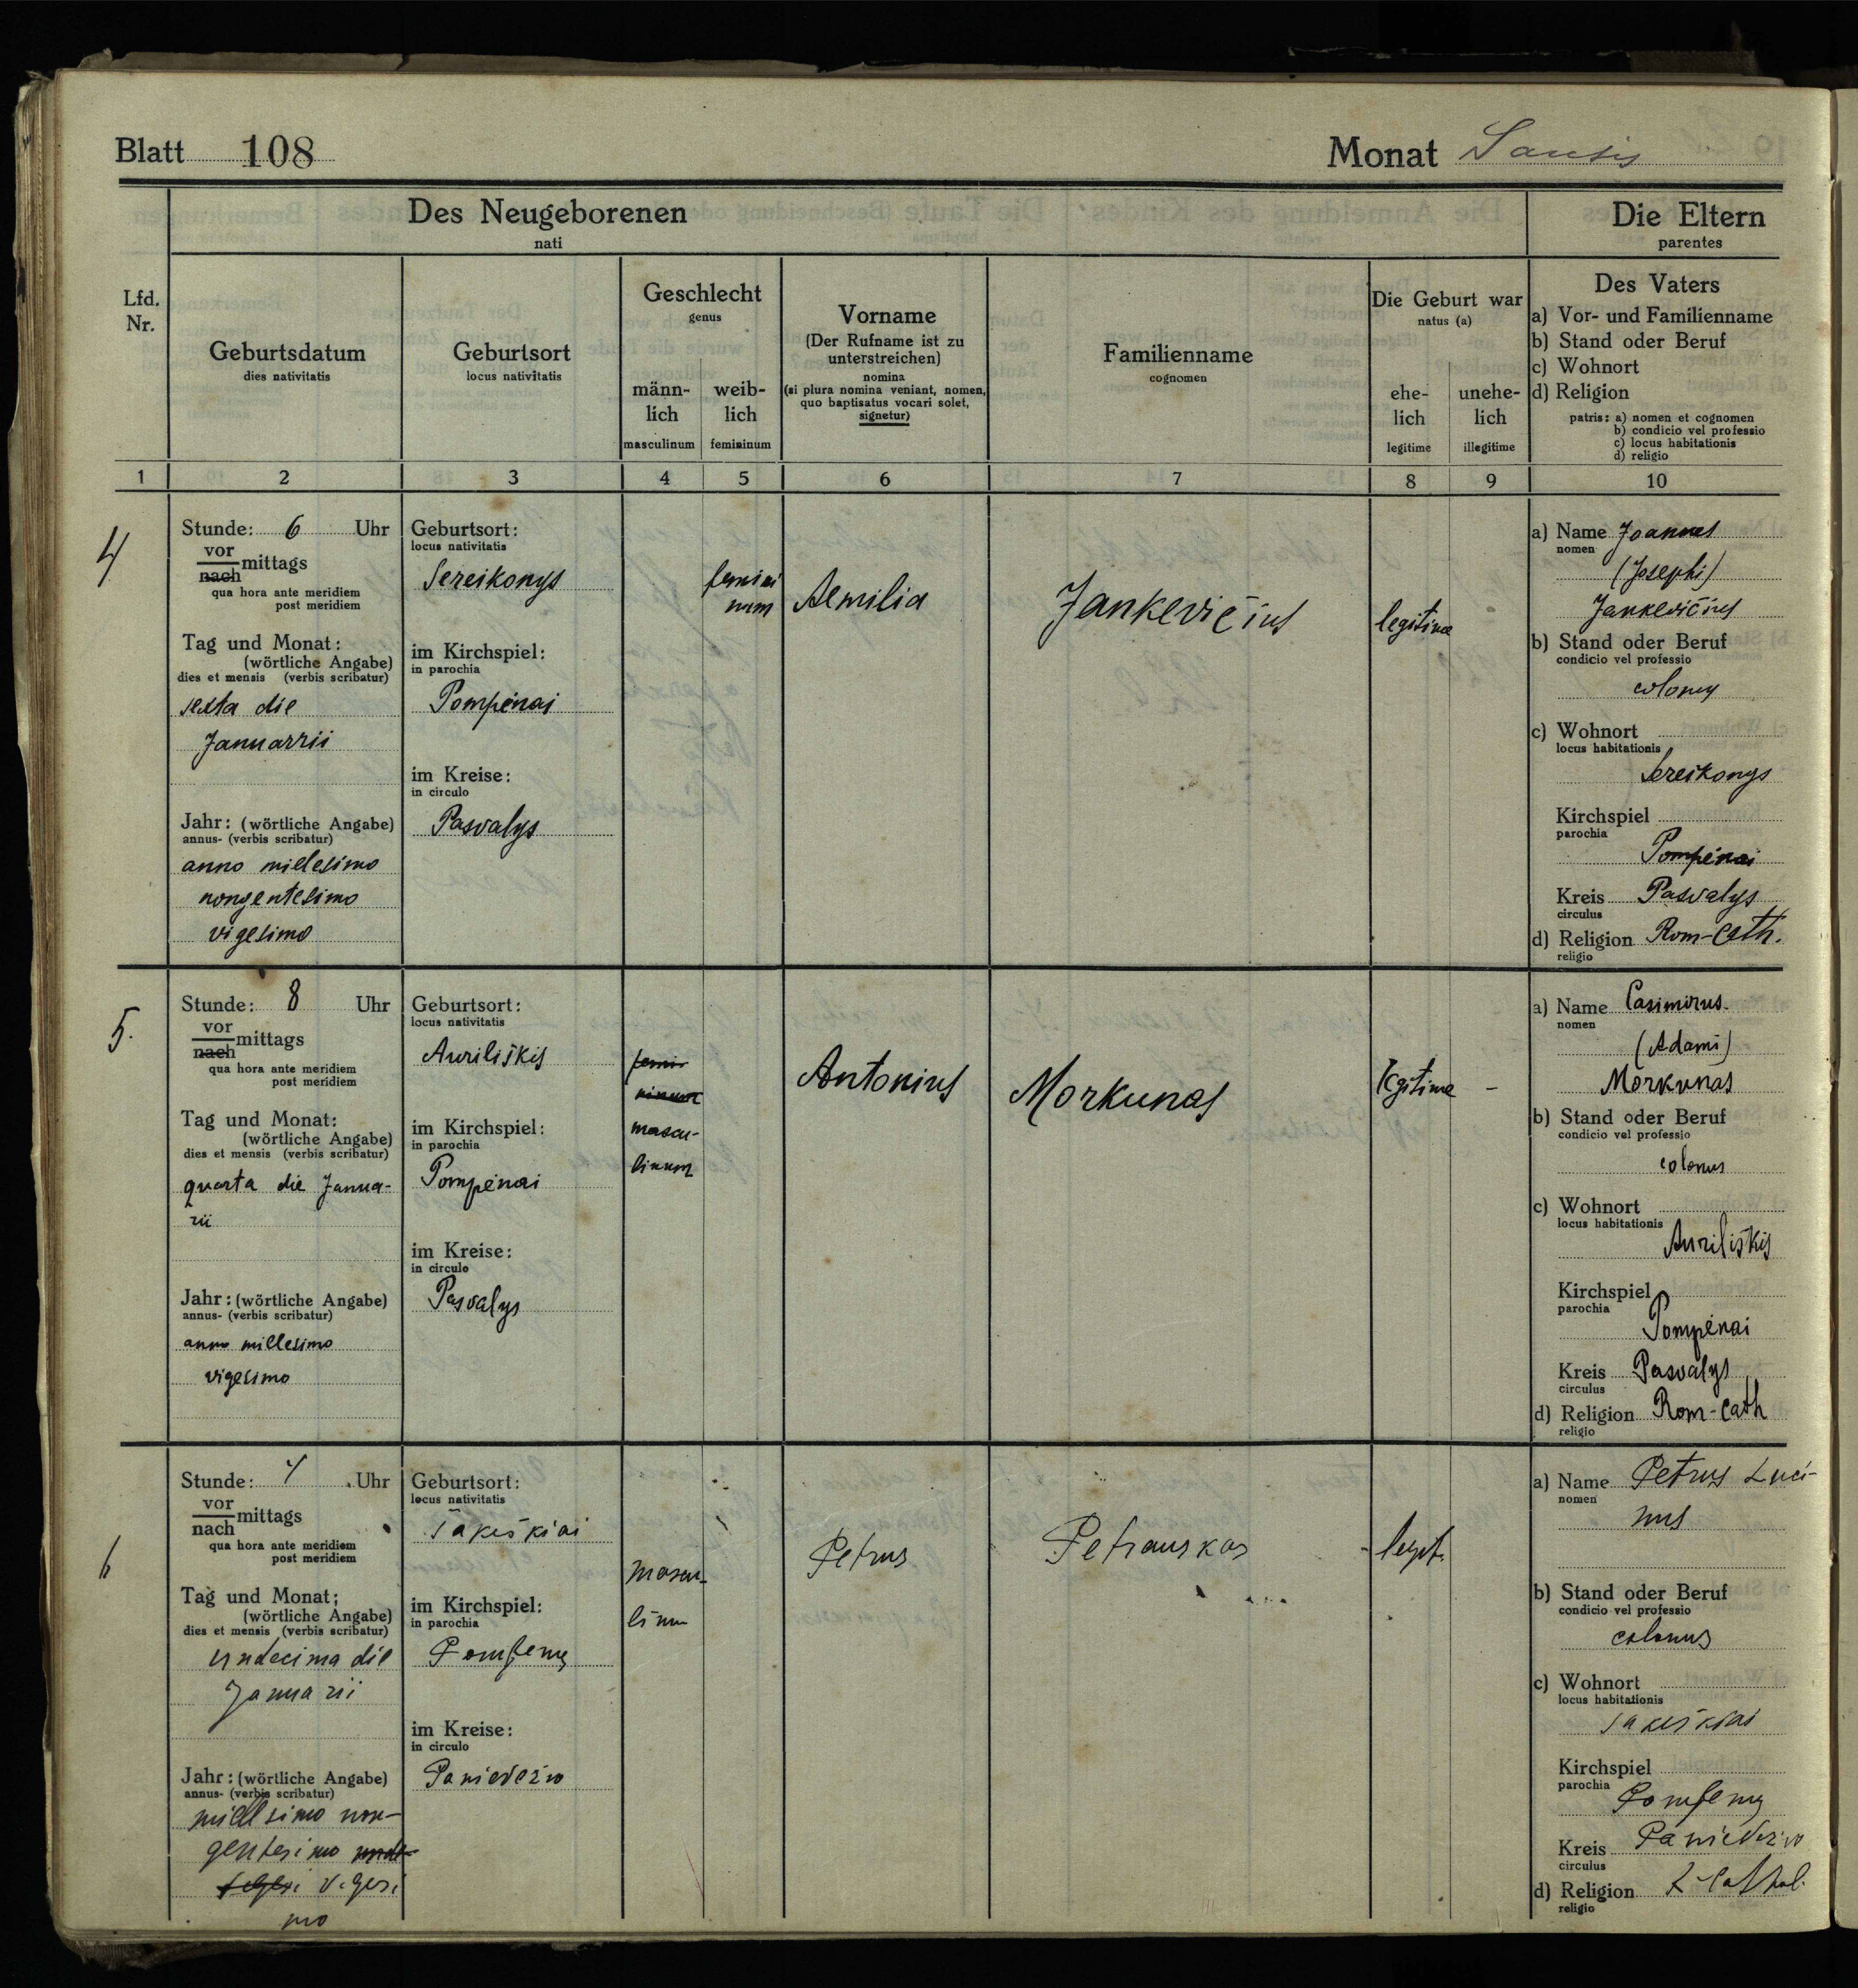 Blatt 108
Monat Sausis
Des Neugeborenen
nati
Die Eltern
parentes
Lfd.
Nr.
Geburtsdatum
dies nativitatis
Geburtsort
locus nativitatis
Geschlecht
genus
männ-
lich
masculinum
weib-
lich
femininum
Vorname
(Der Rufname ist zu
unterstreichen)
nomina
(si plura nomina veniant, nomen,
quo baptisatus vocari solet,
signetur)
Familienname
cognomen
Die Geburt war
natus (a)
ehe-
lich
legitime
unehe-
lich
illegitime
Des Vaters
a) Vor- und Familienname
b) Stand oder Beruf
c) Wohnort
d) Religion
patris: a) nomen et cognomen
b) condicio vel professio
c) locus habitationis
d) religio
1 2 3 4 5 6 7 8 9 10
4
Stunde: 6 Uhr
vor
nach mittags
qua hora ante meridiem
post meridiem
Tag und Monat:
(wörtliche Angabe)
dies et mensis (verbis scribatur)
sexta die
Januarrii
Jahr: (wörtliche Angabe)
annus- (verbis scribatur)
anno millesimo
nongentesimo
vigesimo
Geburtsort:
locus nativitatis
Sereikonys
im Kirchspiel:
in parochia
Pompėnai
im Kreise:
in circulo
Pasvalys
femini
num
Aemilia
Jankevičius
legitime
a) Name Joannes
nomen
(Josephi)
Jankevičius
b) Stand oder Beruf
condicio vel professio
colonus
c) Wohnort
locus habitationis
Sereikonys
Kirchspiel
parochia
Pompėnai
Kreis Pasvalys
circulus
d) Religion Rom-Cath.
religio
5.
Stunde: 8 Uhr
vor
nach mittags
qua hora ante meridiem
post meridiem
Tag und Monat:
(wörtliche Angabe)
dies et mensis (verbis scribatur)
quarta die Janua-
rii
Jahr: (wörtliche Angabe)
annus- (verbis scribatur)
anno millesimo
vigesimo
Geburtsort:
locus nativitatis
Auriliškis
im Kirchspiel:
in parochia
Pompėnai
im Kreise:
in circulo
Pasvalys
femi-
ninum
mascu-
linum
Antonius
Morkunas
legitime -
a) Name Casimirus
nomen
(Adami)
Morkunas
b) Stand oder Beruf
condicio vel professio
colonus
c) Wohnort
locus habitationis
Auriliškis
Kirchspiel
parochia
Pompėnai
Kreis Pasvalys
circulus
d) Religion Rom-Cath
religio
6
Stunde: 4 Uhr
vor
nach mittags
qua hora ante meridiem
post meridiem
Tag und Monat;
(wörtliche Angabe)
dies et mensis (verbis scribatur)
undecima die
Januarii
Jahr: (wörtliche Angabe)
annus- (verbis scribatur)
millsimo non-
gentesimo
vigesi
mo
Geburtsort:
locus nativitatis
Sakiškiai
im Kirchspiel:
in parochia
Pompeny
im Kreise:
in circulo
Paniewežio
mascu-
linu
Petrus
Petrauskas
legit.
a) Name Petrus Luci-
nomen
nus
b) Stand oder Beruf
condicio vel professio
colonus
c) Wohnort
locus habitationis
Sakiškiai
Kirchspiel
parochia
Pompeny
Kreis Paniewežio
circulus
d) Religion R-Cathol.
religio